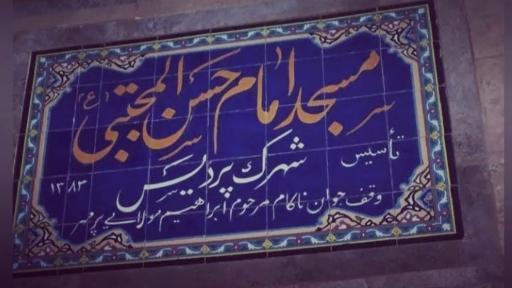 مسجد امام حسن المجتبی (ع)
تأسیس شهرک پردیس ۱۳۸۳
وقف جوان ناکام مرحوم ابراهیم مولایی پرمهر